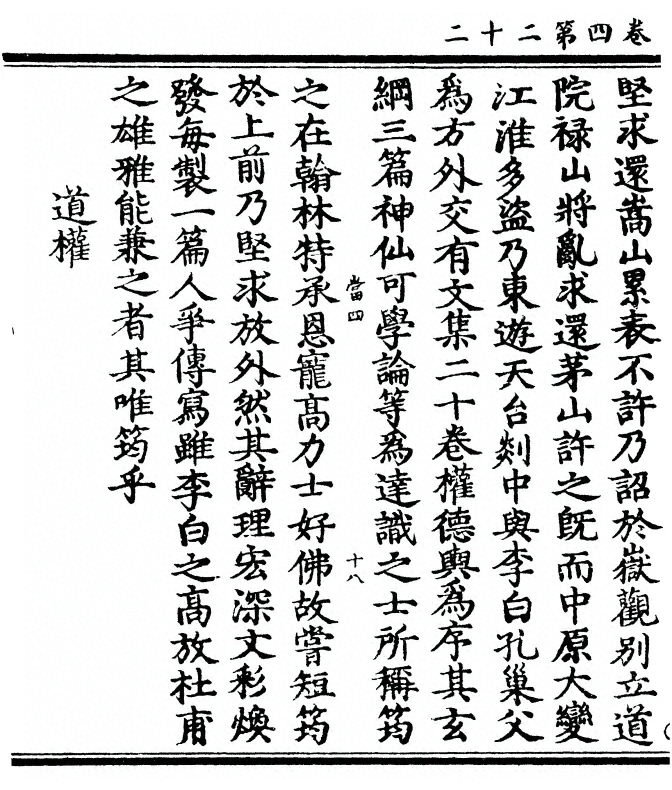 卷四第二十二
堅求還嵩山累表不許乃詔於嶽觀别立道
院禄山將亂求還茅山許之旣而中原大變
江淮多盜乃東遊天台剡中與李白孔巢父
爲方外交有文集二十卷權德輿爲序其玄
綱三篇神仙可學論等爲達識之士所稱筠
當四
十八
之在翰林特承恩寵高力士好佛故嘗短筠
於上前乃堅求放外然其辭理宏深文彩煥
發每製一篇人爭傳寫雖李白之高放杜甫
之雄雅能兼之者其唯筠乎
道權